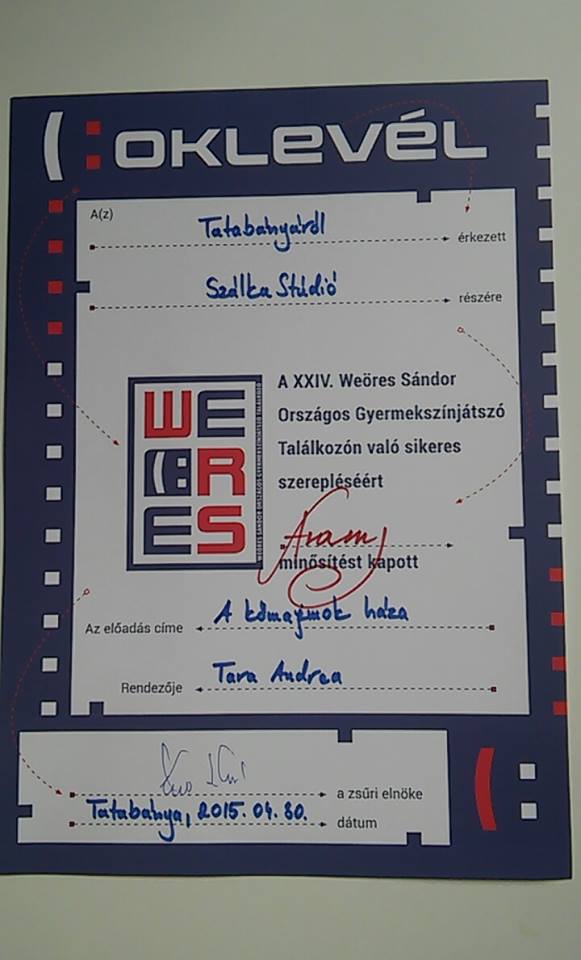 OKLEVÉL
A(z)
Tatabányáról érkezett
Szálka Stúdió részére
WE
RES
WEÖRES SÁNDOR ORSZÁGOS GYERMEKSZÍNJÁTSZÓ TALÁLKOZÓ
A XXIV. Weöres Sándor
Országos Gyermekszínjátszó
Találkozón való sikeres
szerepléséért
Arany
minősítést kapott
Az előadás címe A kőmajmok háza
Rendezője Tara Andrea
a zsűri elnöke
Tatabánya, 2015. 04. 30. dátum